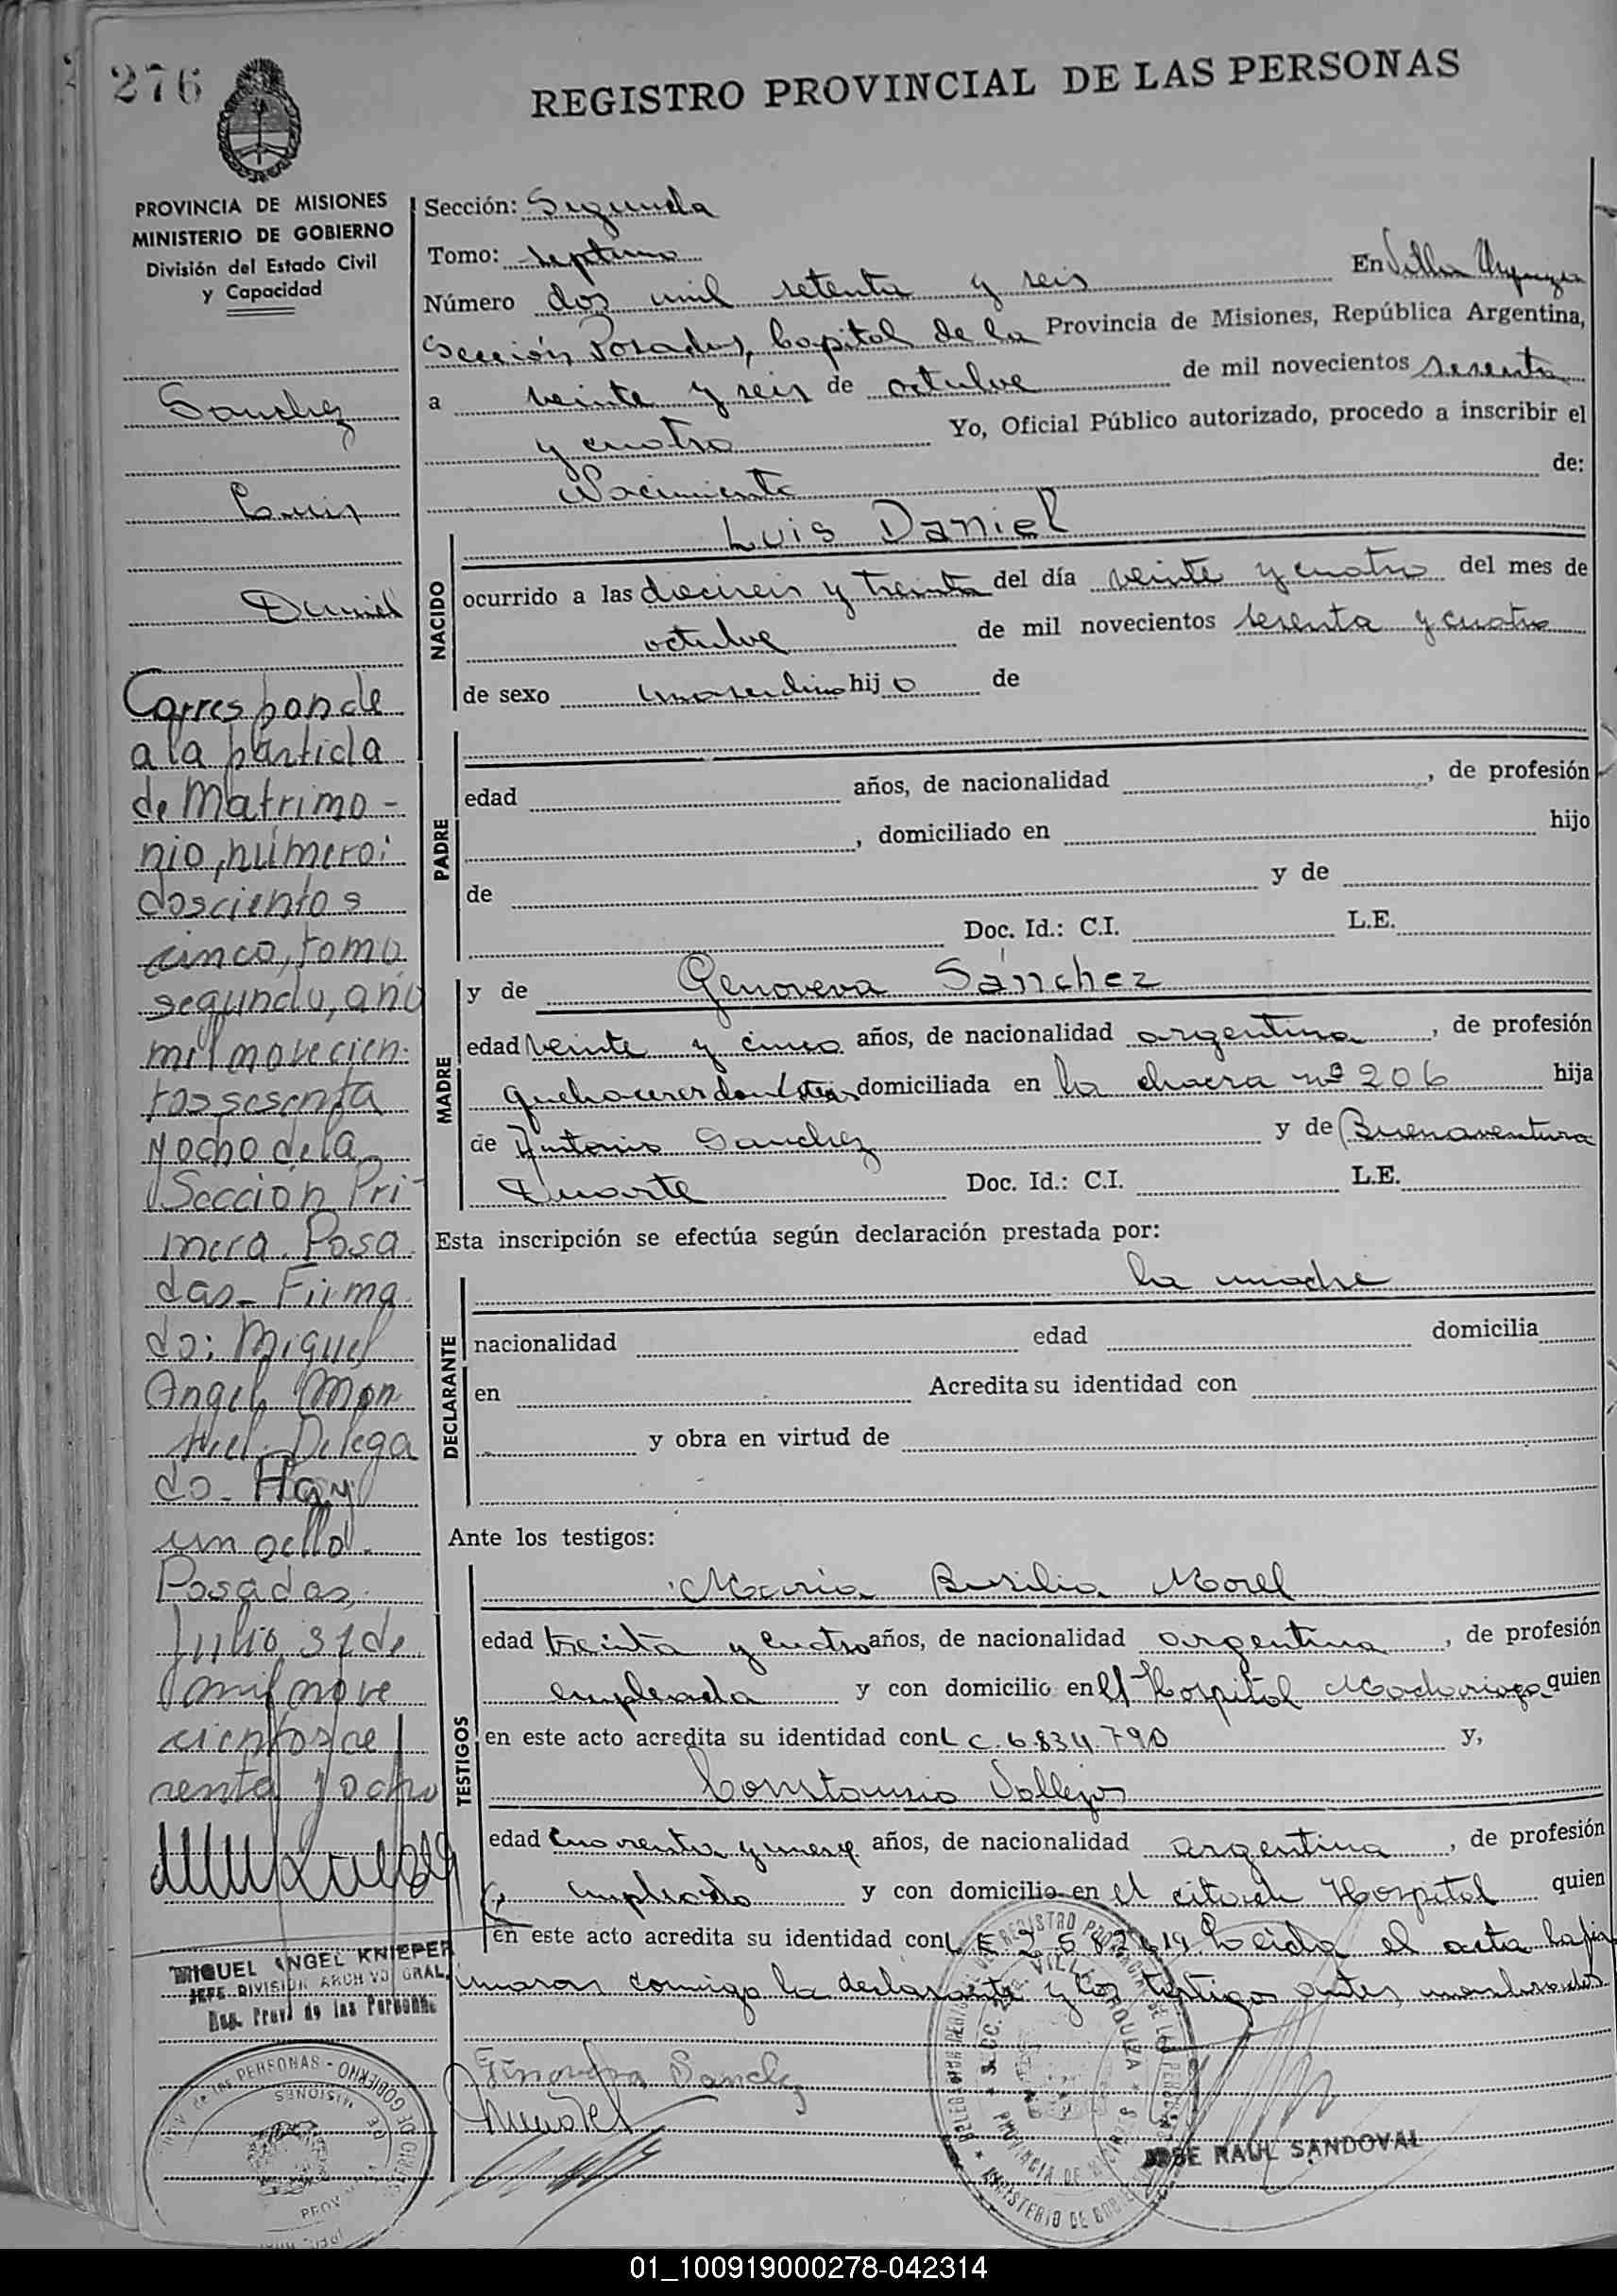 276
REGISTRO PROVINCIAL DE LAS PERSONAS
PROVINCIA DE MISIONES
MINISTERIO DE GOBIERNO
División del Estado Civil
y Capacidad
Sanchez
Luis
Daniel
Corresponde
a la partida
de Matrimo-
nio, número:
doscientos
cinco, tomo
segundo, año
mil novecien-
tos sesenta
y ocho de la
Sección Pri-
mera. Posa
das- Firma
do: Miguel
Angel Mon
tiel. Delega
do- Hay
un sello.
Posadas,
Julio 31 de
mil nove
cientos se
senta y ocho
MIGUEL ANGEL KNIEPER
JEFE DIVISION ARCH VO GRAL.
Reg. Prov. de las Personas
Sección: Segunda
Tomo: septimo
Número dos mil setenta y seis En Villa Urquiza
Sección, Posadas, Capital de la Provincia de Misiones, República Argentina,
a veinte y seis de octubre de mil novecientos sesenta
y cuatro Yo, Oficial Público autorizado, procedo a inscribir el
Nacimiento de:
NACIDO
Luis Daniel
ocurrido a las dieciseis y treinta del día veinte y cuatro del mes de
octubre de mil novecientos sesenta y cuatro
de sexo masculino hijo de
PADRE
edad años, de nacionalidad , de profesión
, domiciliado en hijo
de y de
Doc. Id.: C.I. L.E.
MADRE
y de Genoveva Sánchez
edad veinte y cinco años, de nacionalidad argentina, de profesión
quehaceres domiciliada en la chacra nº 206 hija
de Antonio Sanchez y de Buenaventura
Duarte Doc. Id.: C.I. L.E.
Esta inscripción se efectúa según declaración prestada por:
DECLARANTE
la madre
nacionalidad edad domicilia
en Acredita su identidad con
y obra en virtud de
Ante los testigos:
TESTIGOS
María Basilia Morel
edad treinta y cuatro años, de nacionalidad argentina, de profesión
empleada y con domicilio en el Hospital Madariaga quien
en este acto acredita su identidad con L C. 6.834.790 y,
Constancio Vallejos
edad cuarenta y nueve años, de nacionalidad argentina, de profesión
empleado y con domicilio en el citado Hospital quien
en este acto acredita su identidad con L E Leida el acta la fir
maron conmigo la declarante y los testigos antes mencionados
Genoveva Sanchez
JOSE RAUL SANDOVAL
01_100919000278-042314